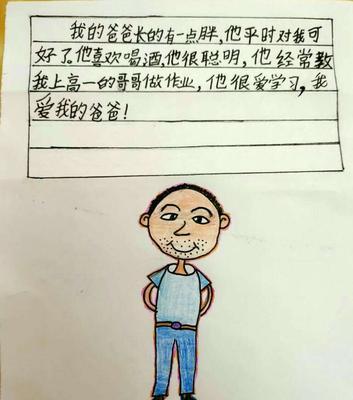 我的爸爸长的有一点胖，他平时对我可
好了。他喜欢喝酒，他很聪明，他经常教
我上高一的哥哥做作业，他很爱学习，我
爱我的爸爸！